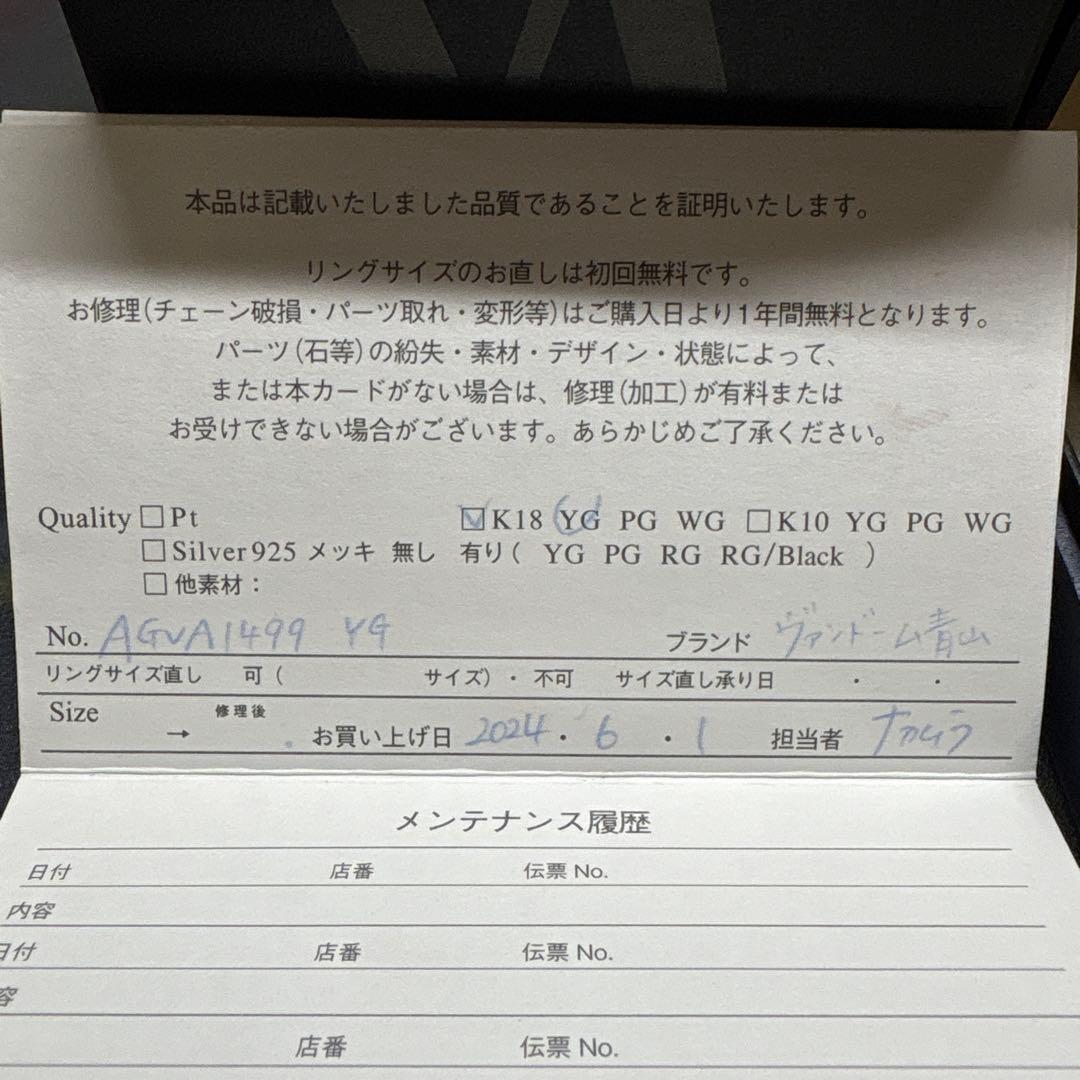 本品は記載いたしました品質であることを証明いたします。
リングサイズのお直しは初回無料です。
お修理(チェーン破損・パーツ取れ・変形等)はご購入日より1年間無料となります。
パーツ(石等)の紛失・素材・デザイン・状態によって、
または本カードがない場合は、修理(加工)が有料または
お受けできない場合がございます。あらかじめご了承ください。
Quality □Pt ☑K18 YG PG WG □K10 YG PG WG
□Silver925 メッキ 無し 有り( YG PG RG RG/Black )
□他素材:
No. AGVA1499 YG ブランド ヴァンドーム青山
リングサイズ直し 可( サイズ)・不可 サイズ直し承り日 ・ ・
Size → 修理後 お買い上げ日 2024・6・1 担当者 ナカムラ
メンテナンス履歴
日付 店番 伝票 No.
内容
日付 店番 伝票 No.
容
店番 伝票 No.